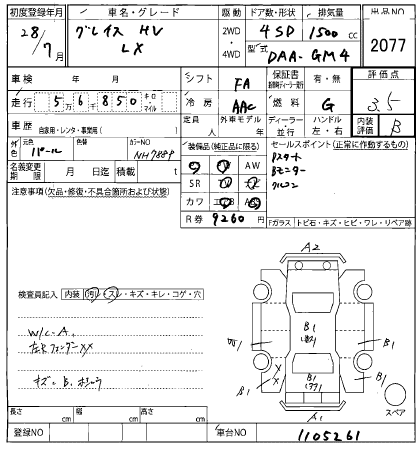 初度登録年月 車名・グレード 駆動 ドア数・形状 排気量 出品NO
28/7月 グレイス HV LX 2WD・4WD 4SD 1500cc 2077
型式 DAA-GM4
車検 年 月 シフト FA 保証書 有・無 評価点
走行 5万6850 キロ・マイル 冷房 AAC 燃料 G 3.5
車歴 自家用・レンタ・事業用( ) 定員 人 外車モデル 年 ディーラー・並行 ハンドル 左・右 内装評価 B
外色 元色 パール 色替 カラーNO NH788P 装備品(純正品に限る) セールスポイント(正常に作動するもの)
名義変更期限 月 日迄 積載 t AW
Pスタート
Bモニター
クルコン
注意事項(欠品・修復・不具合箇所および状態) SR
カワ
R券 9260円
Fガラス トビ石・キズ・ヒビ・ワレ・リペア跡
検査員記入 内装 汚レ・スレ・キズ・キレ・コゲ・穴
W/C-A.
キズ・B.
A2
B1
W1
B1
B1
B1
B1
A1
スペア
長さ cm 幅 cm 高さ cm
登録NO 車台NO 1105261